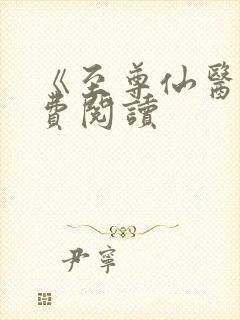 《至尊仙醫
費閱讀
尹寧